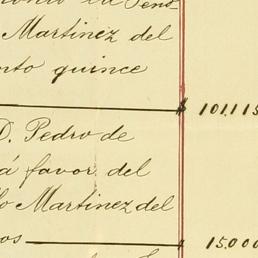 Martinez del
nto quince
$ 101.115
D. Pedro de
á favor del
lo Martinez del
os $ 15.000